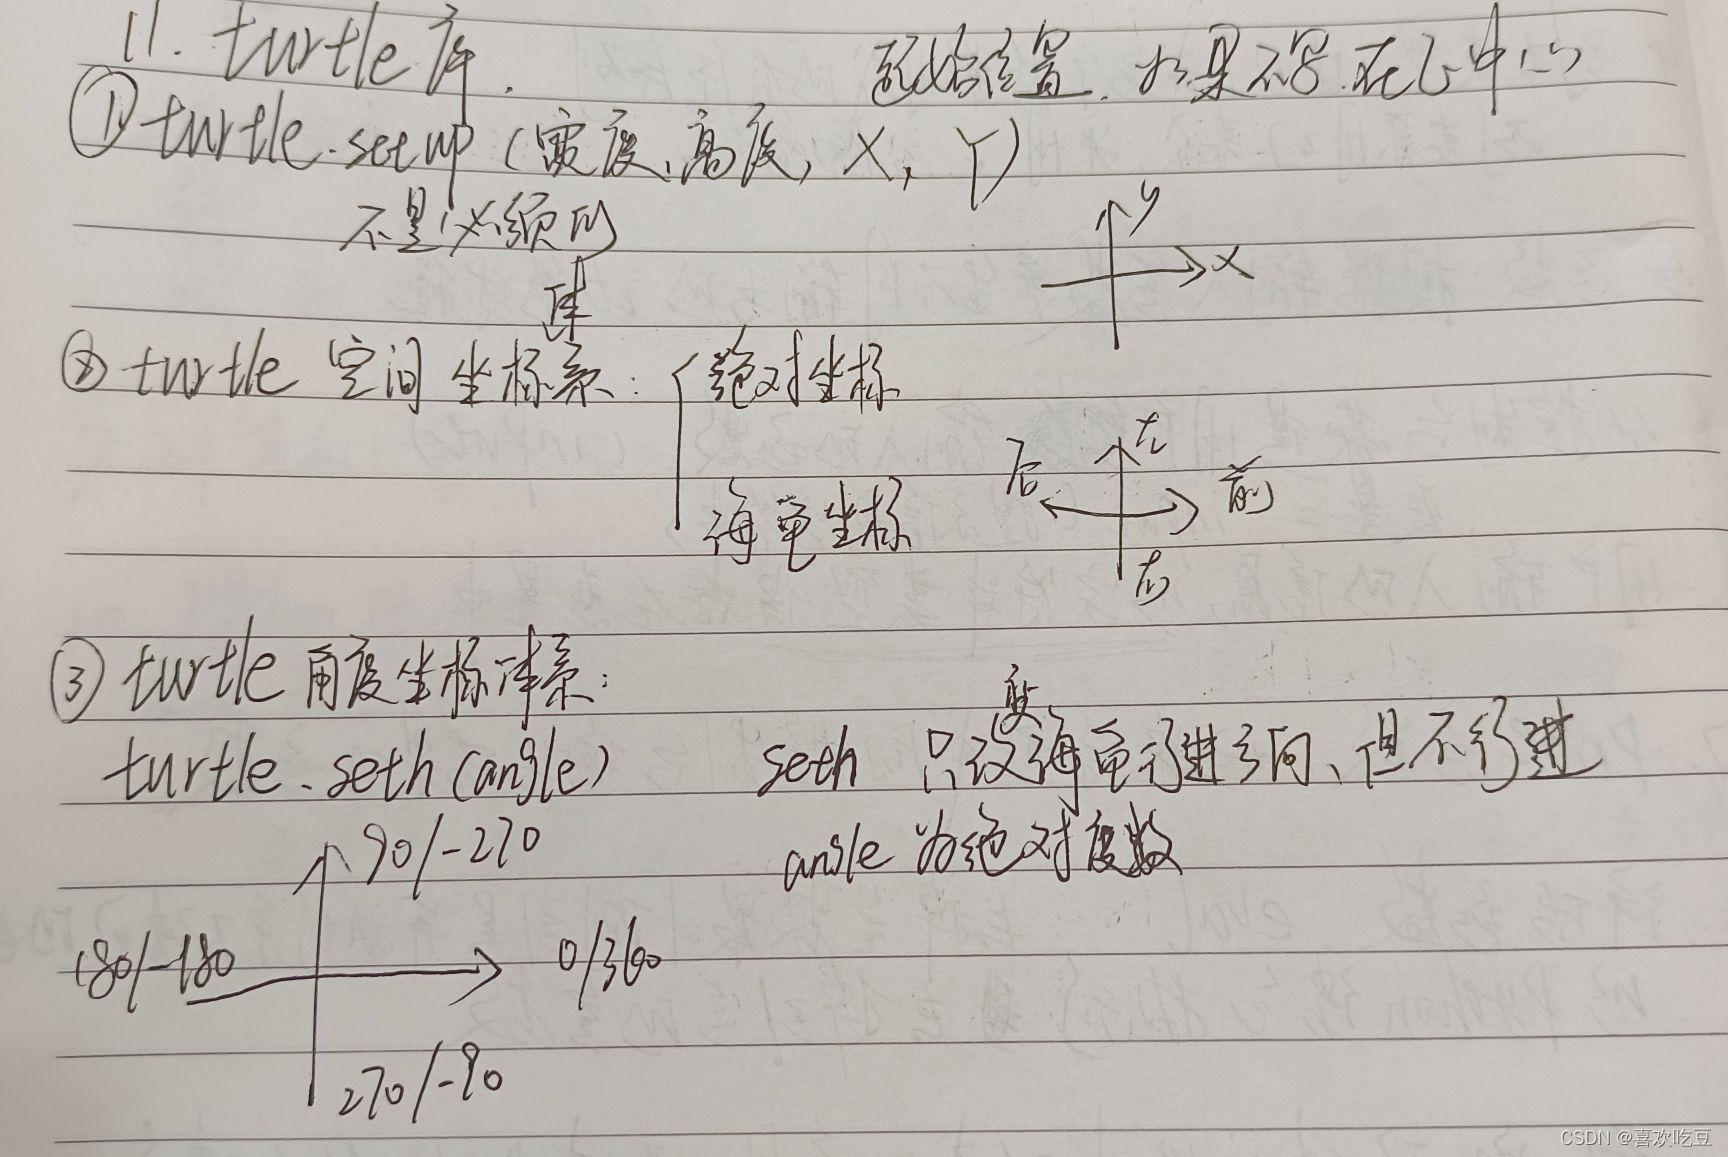 11. turtle库.
起始位置. 如果不写.在正中心
① turtle.setup (宽度、高度, X, Y)
不是必须的
y
x
体
② turtle 空间 坐标系: 绝对坐标
左
后
前
海龟坐标
右
③ turtle 角度坐标体系:
变
turtle.seth(angle) seth 只改海龟行进方向、但不行进
angle 为绝对度数
90/-270
180/-180
0/360
270/-90
CSDN @喜欢吃豆